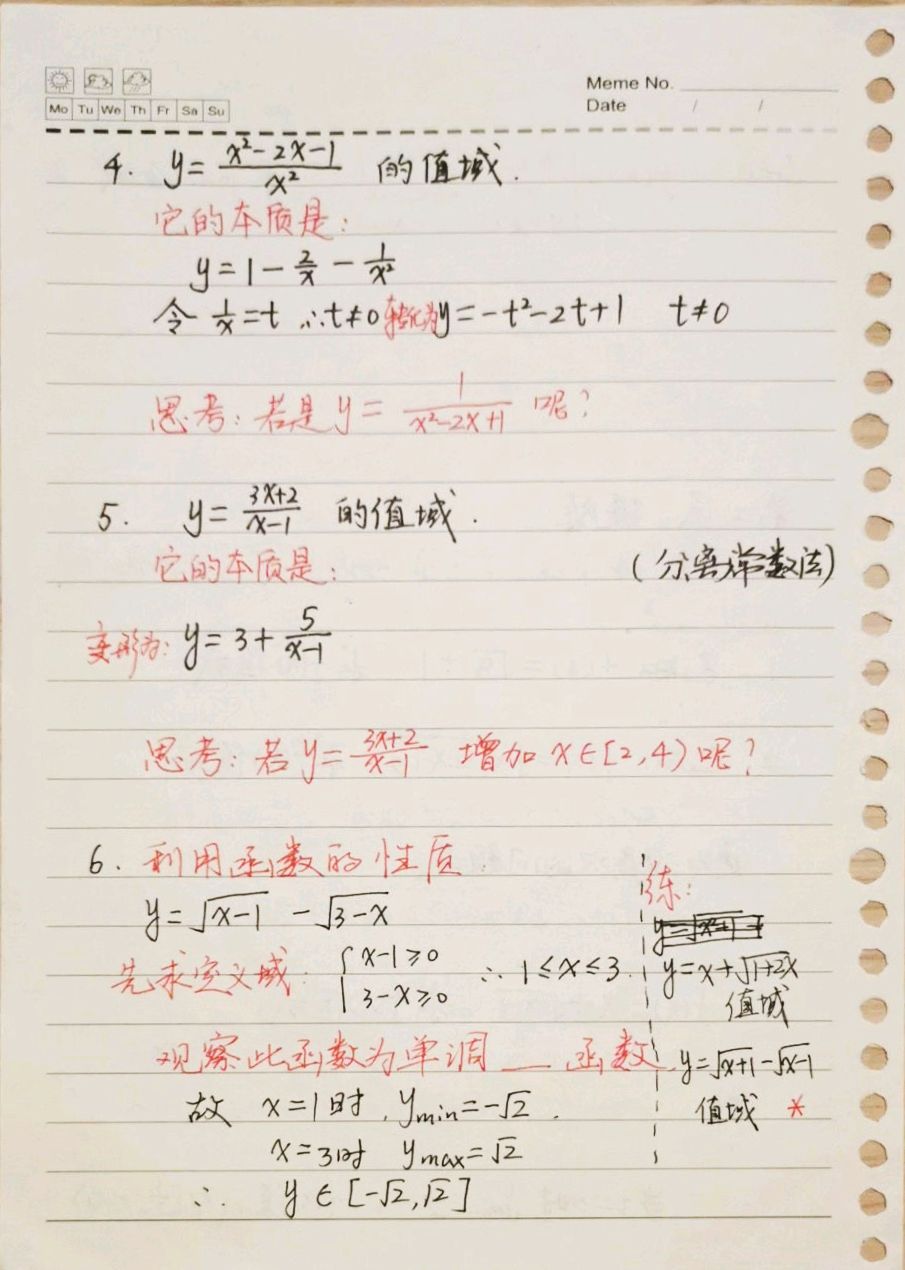 Meme No.
Mo Tu We Th Fr Sa Su
Date / /
4. y = (x²-2x-1)/x² 的值域.
它的本质是:
y = 1 - 2/x - 1/x²
令 1/x = t ∴ t≠0 转化为 y = -t²-2t+1 t≠0
思考: 若是 y = 1/(x²-2x+1) 呢?
5. y = (3x+2)/(x-1) 的值域.
它的本质是: (分离常数法)
变形为: y = 3 + 5/(x-1)
思考: 若 y = (3x+2)/(x-1) 增加 x∈[2,4) 呢?
6. 利用函数的性质
y = √(x-1) - √(3-x)
先求定义域: { x-1≥0
3-x≥0 ∴ 1≤x≤3.
观察此函数为单调 __ 函数.
故 x=1时, ymin = -√2.
x=3时 ymax = √2
∴ y ∈ [-√2, √2]
练:
y = x + √(1+2x)
值域
y = √(x+1) - √(x-1)
值域 *